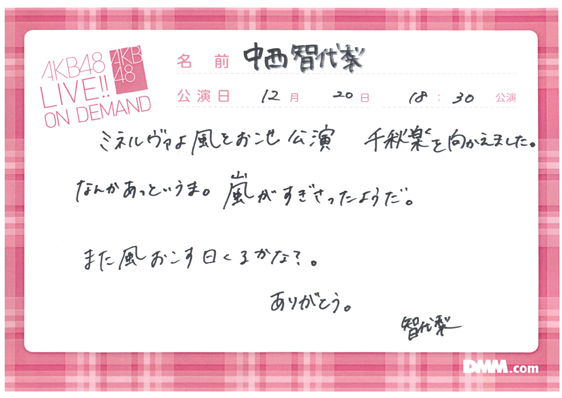 AKB48
LIVE!!
ON DEMAND
AKB
48
名前 中西智代梨
公演日 12月 20日 18:30 公演
ミネルヴァよ風をおこせ公演 千秋楽を向かえました。
なんかあっというま。嵐がすぎさったようだ。
また風おこす日くるかな?。
ありがとう。
智代梨
DMM.com